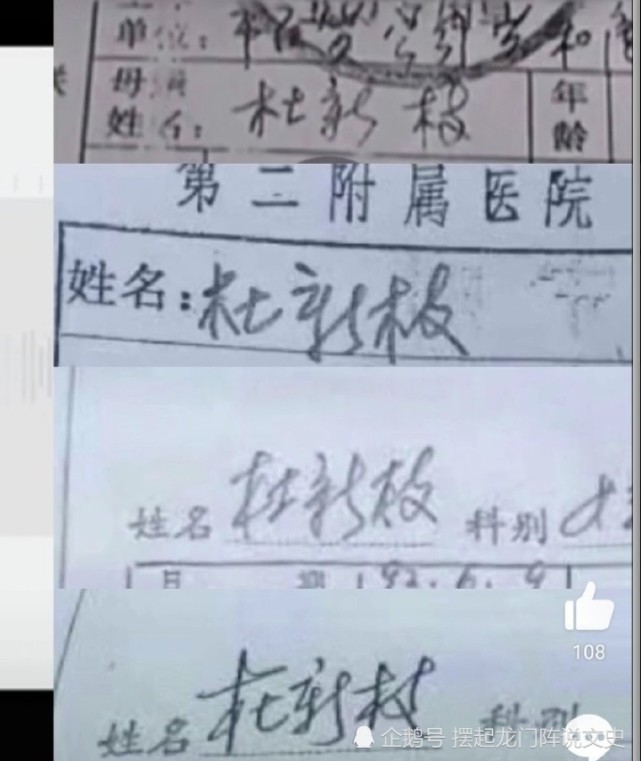 单位：
母亲 年
姓名：杜新枝 龄
第二附属医院
姓名：杜新枝
姓名 杜新枝 科别
92.6.
108
姓名 杜新枝 科别
企鹅号 摆起龙门阵说文史